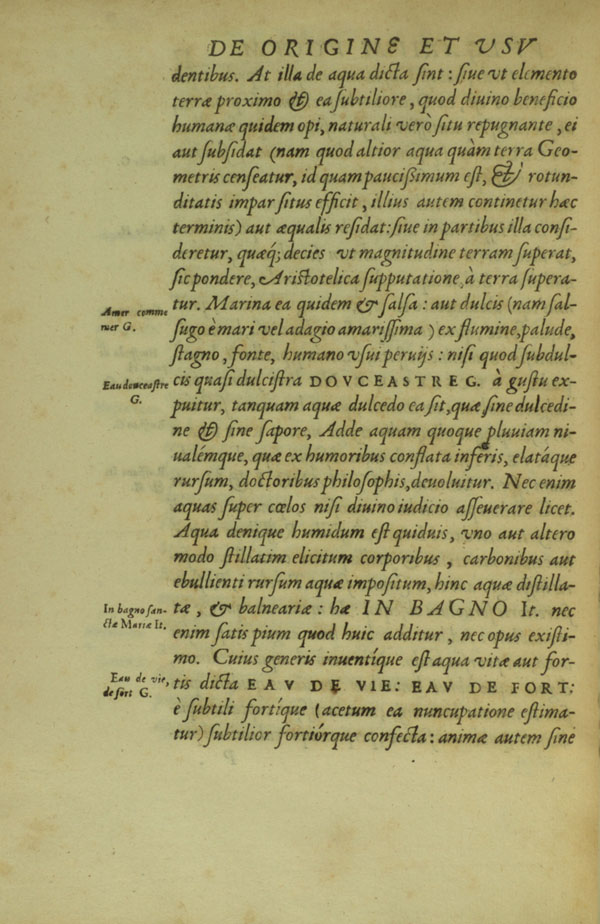 DE ORIGINE ET VSV
dentibus. At illa de aqua dicta ſint : ſiue vt elemento
terræ proximo & ea ſubtiliore, quod diuino beneficio
humanæ quidem opi, naturali verò ſitu repugnante, ei
aut ſubſidat (nam quod altior aqua quàm terra Geo-
metris cenſeatur, id quam pauciſſimum eſt, & rotun-
ditatis impar ſitus efficit, illius autem continetur hæc
terminis) aut æqualis reſidat: ſiue in partibus illa conſi-
deretur, quæq; decies vt magnitudine terram ſuperat,
ſic pondere, Ariſtotelica ſupputatione à terra ſupera-
tur. Marina ea quidem & ſalſa : aut dulcis (nam ſal-
Amer comme
mer G.
ſugo è mari vel adagio amariſſima ) ex flumine, palude,
ſtagno, fonte, humano vſui peruijs : niſi quod ſubdul-
cis quaſi dulciſtra DOVCEASTRE G. à guſtu ex-
Eau douceaſtre
G.
puitur, tanquam aquæ dulcedo ea ſit, quæ ſine dulcedi-
ne & ſine ſapore, Adde aquam quoque pluuiam ni-
ualémque, quæ ex humoribus conflata inferis, elatáque
rurſum, doctoribus philoſophis, deuoluitur. Nec enim
aquas ſuper cœlos niſi diuino iudicio aſſeuerare licet.
Aqua denique humidum eſt quiduis, vno aut altero
modo ſtillatim elicitum corporibus, carbonibus aut
ebullienti rurſum aquæ impoſitum, hinc aquæ diſtilla-
tæ, & balneariæ : hæ IN BAGNO It. nec
In bagno ſan-
ctæ Mariæ It.
enim ſatis pium quod huic additur, nec opus exiſti-
mo. Cuius generis inuentíque eſt aqua vitæ aut for-
tis dicta EAV DE VIE: EAV DE FORT:
Eau de vie,
de fort G.
è ſubtili fortíque (acetum ea nuncupatione eſtima-
tur) ſubtilior fortiórque confecta : animæ autem ſine